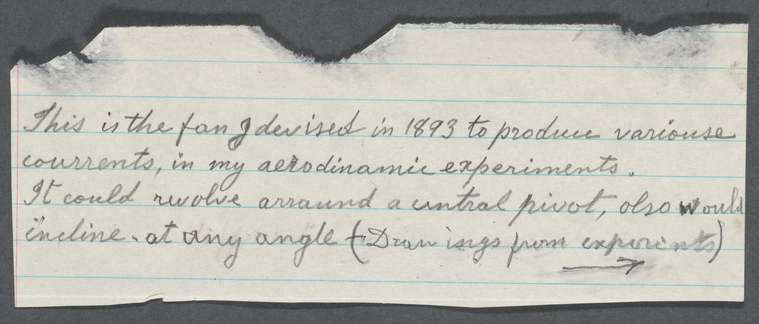 This is the fan I devised in 1893 to produce variouse
courrents, in my aerodinamic experiments.
It could revolve arraund a central pivot, also would
incline at any angle (Drawings from experients)